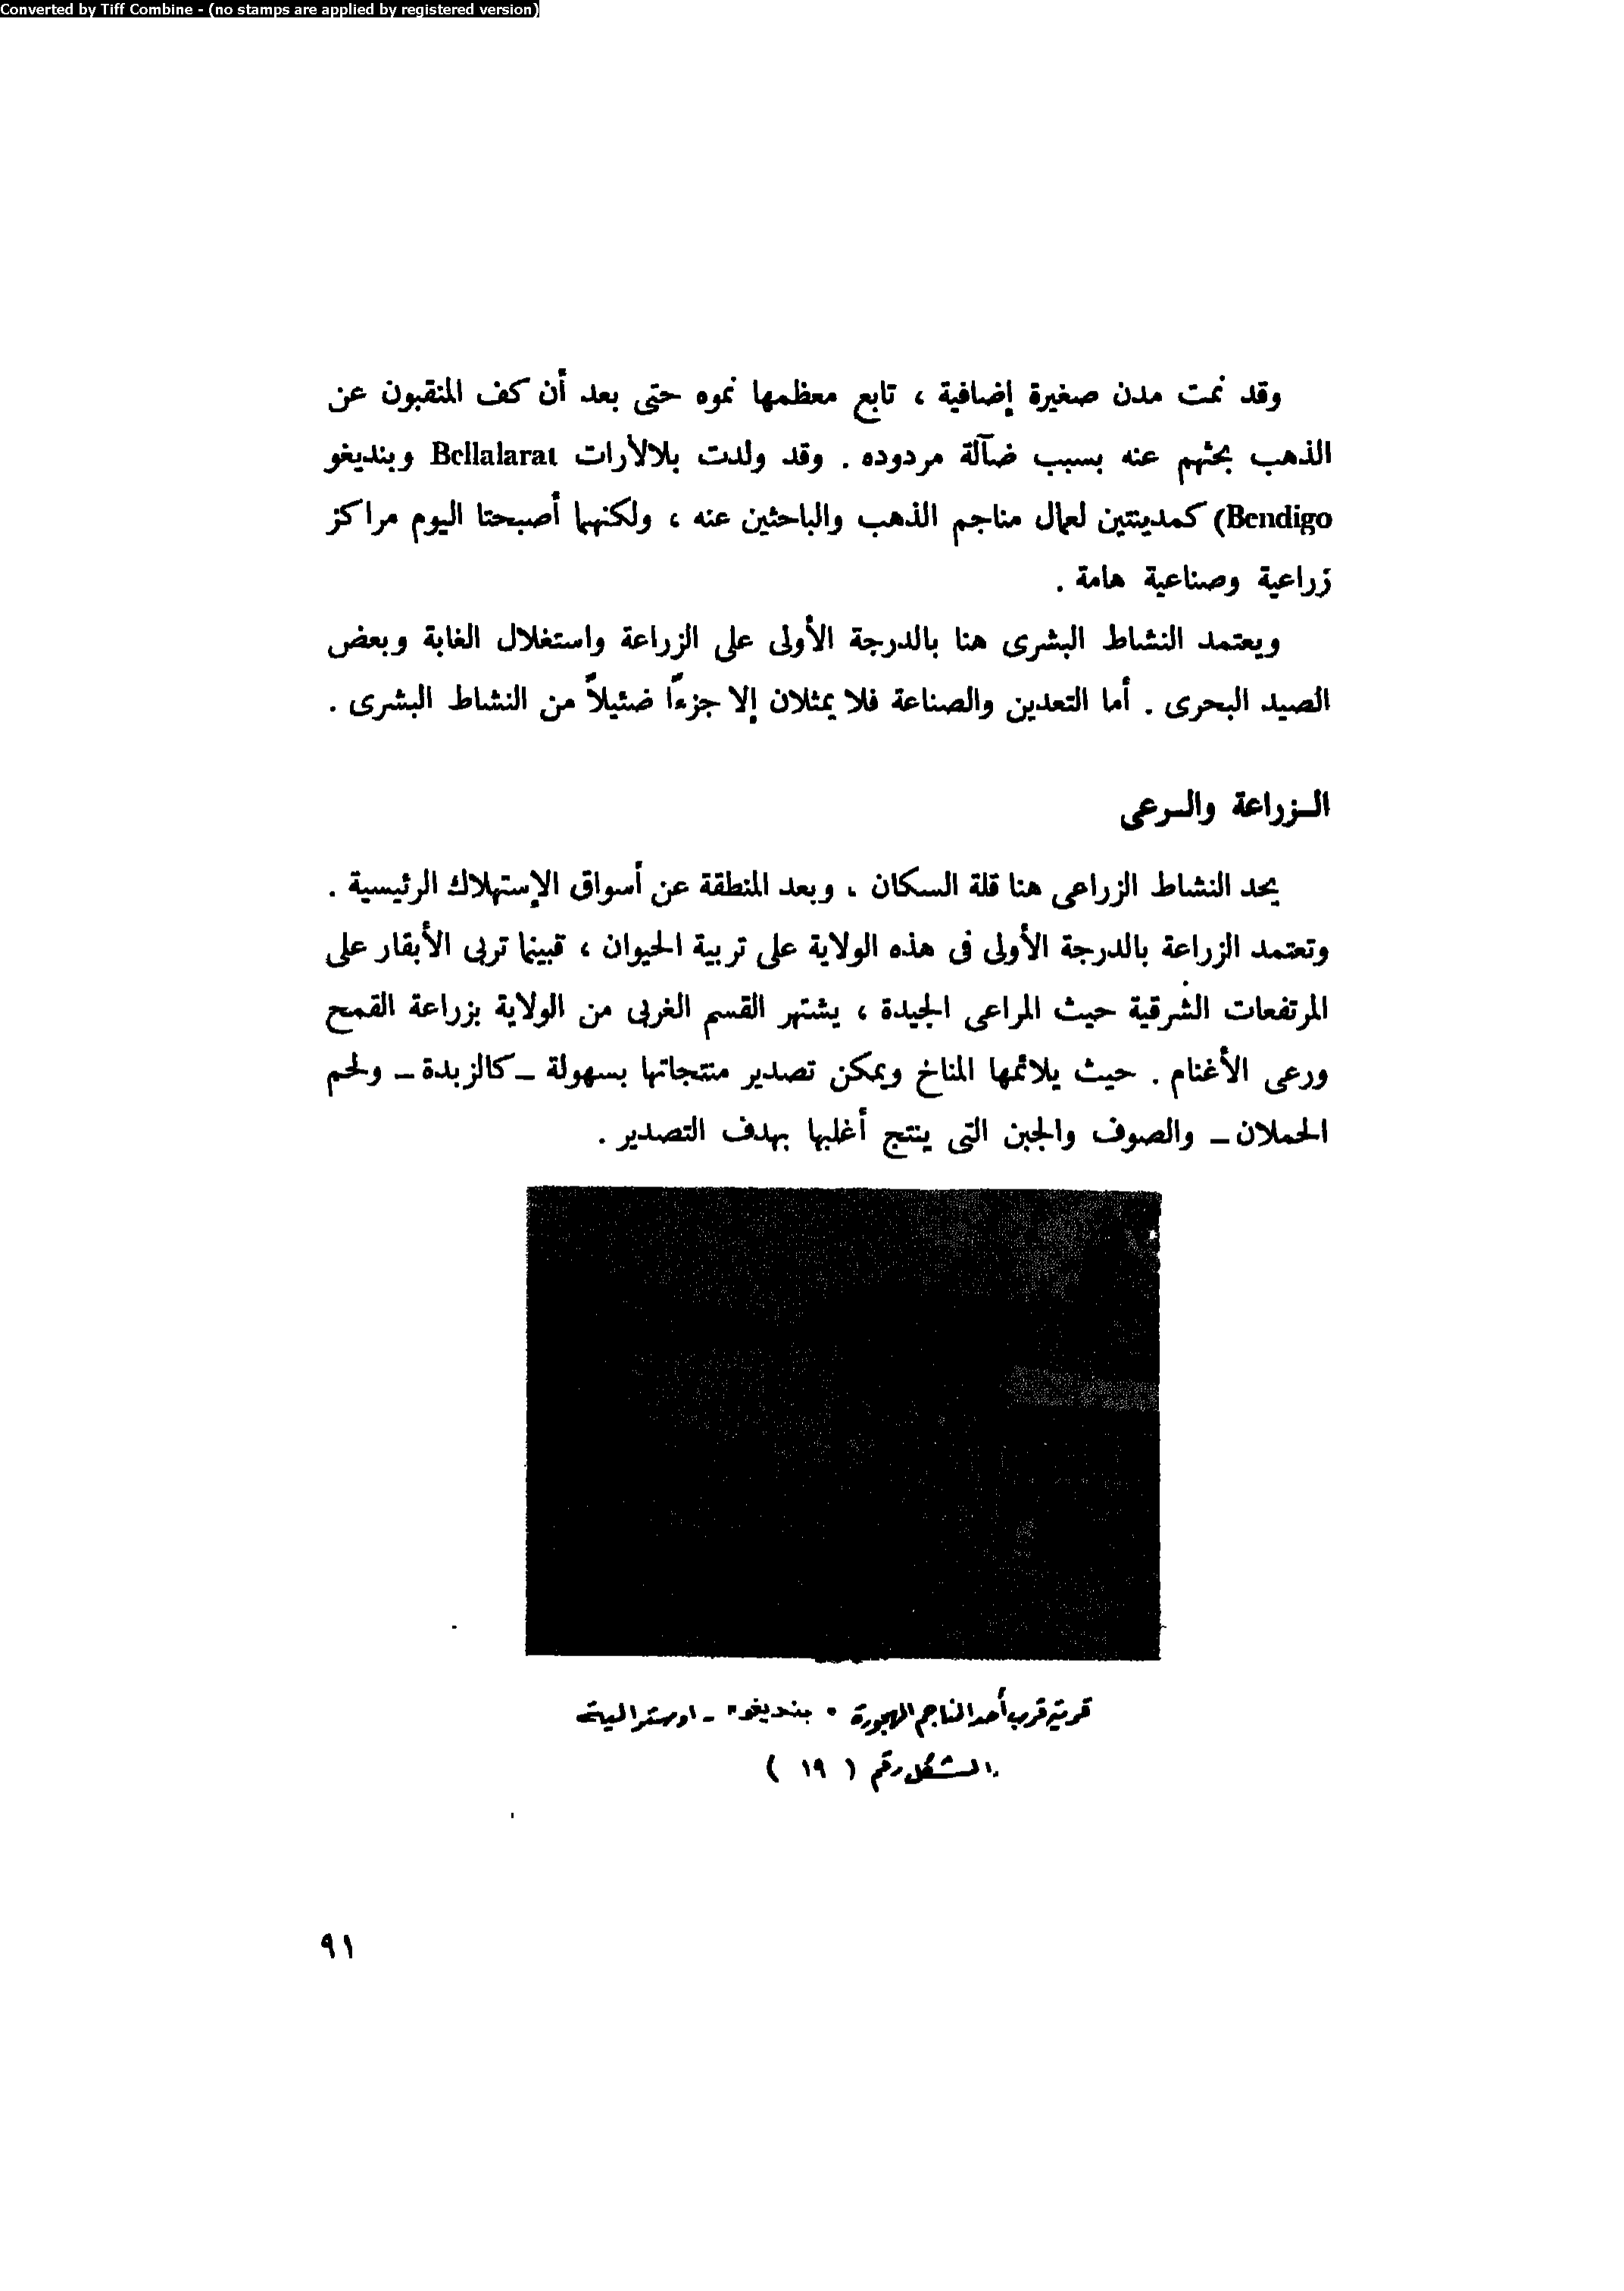 Converted by Tiff Combine - (no stamps are applied by registered version)
وقد نمت مدن صغيرة إضافية ، تابع معظمها نموه حتى بعد أن كف المنقبون عن
الذهب بحثهم عنه بسبب ضآلة مردوده . وقد ولدت بلالأرات Bellalarat وبنديغو
Bendigo) كمدينتين لعمال مناجم الذهب والباحثين عنه ، ولكنهما أصبحتا اليوم مراكز
زراعية وصناعية هامة .
ويعتمد النشاط البشرى هنا بالدرجة الأولى على الزراعة واستغلال الغابة وبعض
الصيد البحرى . أما التعدين والصناعة فلا يمثلان إلا جزءاً ضئيلاً من النشاط البشرى .
الـزراعة والـرعى
يحد النشاط الزراعى هنا قلة السكان ، وبعد المنطقة عن أسواق الإستهلاك الرئيسية .
وتعتمد الزراعة بالدرجة الأولى فى هذه الولاية على تربية الحيوان ، قبينما تربى الأبقار على
المرتفعات الشرقية حيث المراعى الجيدة ، يشتهر القسم الغربى من الولاية بزراعة القمح
ورعى الأغنام . حيث يلائمها المناخ ويمكن تصدير منتجاتها بسهولة – كالزبدة – ولحم
الحملان – والصوف والجبن التى ينتج أغلبها بهدف التصدير .
قرية قرب أحد المناجم المهجورة " بنديغو " - اوسترالية
الشكل رقم ( ١٩ )
٩١